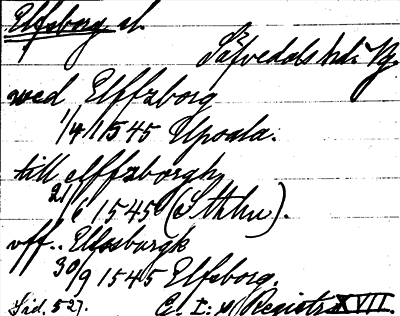 Elfsborg sl.
Säfvedals hd. Vg.
wed Elffzborg
1/4 1545 Upsala.
till elffzborgh,
21/6 1545 (Sthlm).
vff.. Elfssburgk
30/9 1545 Elfsborg.
Sid. 527. G. I:s Registr XVII.